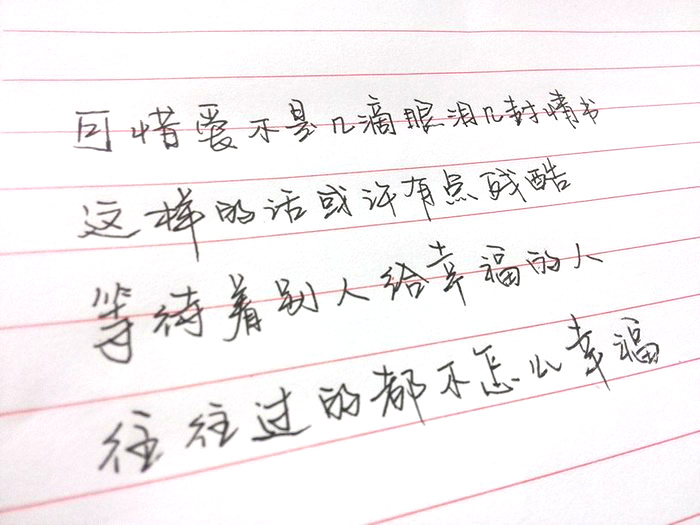 可惜爱不是几滴眼泪几封情书
这样的话或许有点残酷
等待着别人给幸福的人
往往过的都不怎么幸福